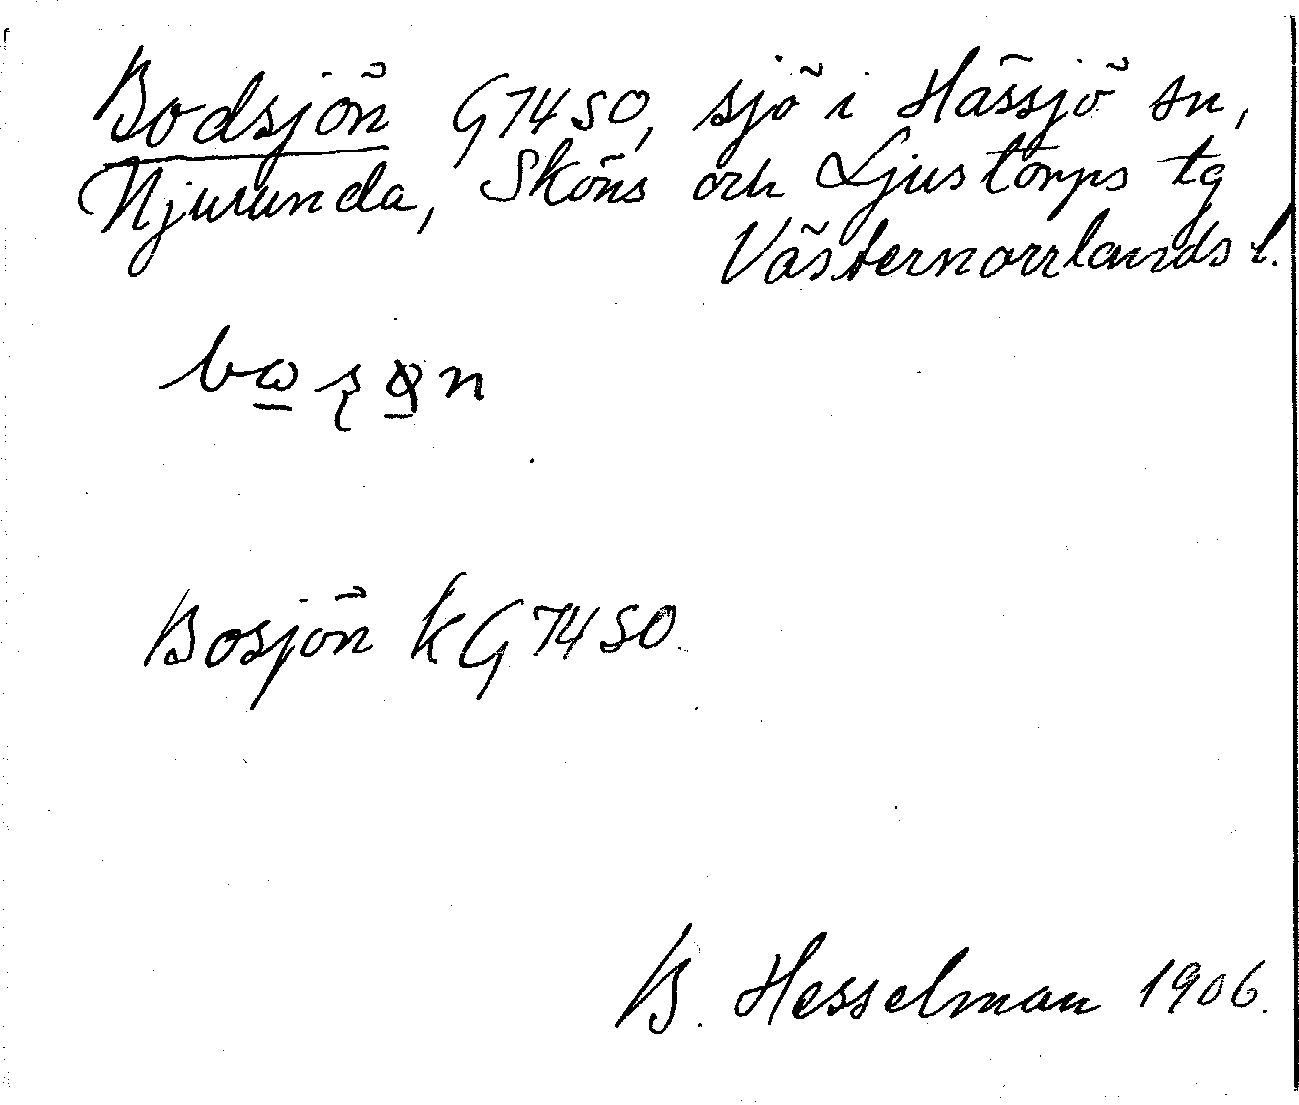 Bodsjön G74SO, sjö i Hässjö sn,
Njurunda, Sköns och Ljustorps tg
Västernorrlands l.
Bosjön k G74SO
B. Hesselman 1906.